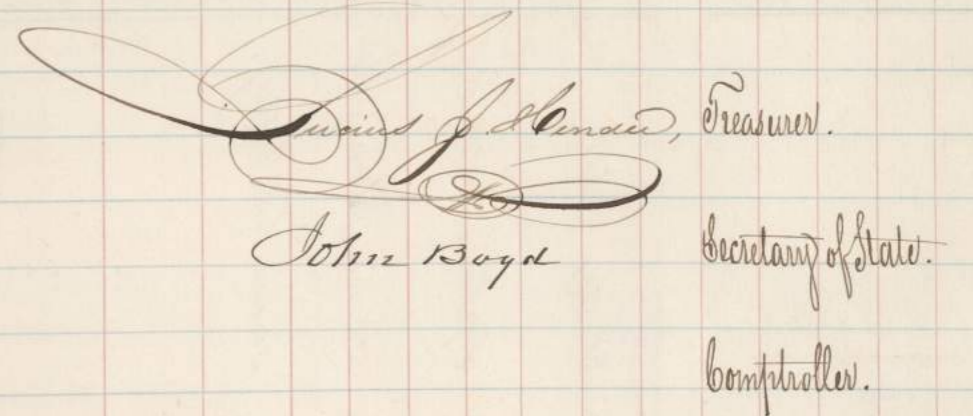 Lucius J. Hendee, Treasurer.
John Boyd Secretary of State.
Comptroller.